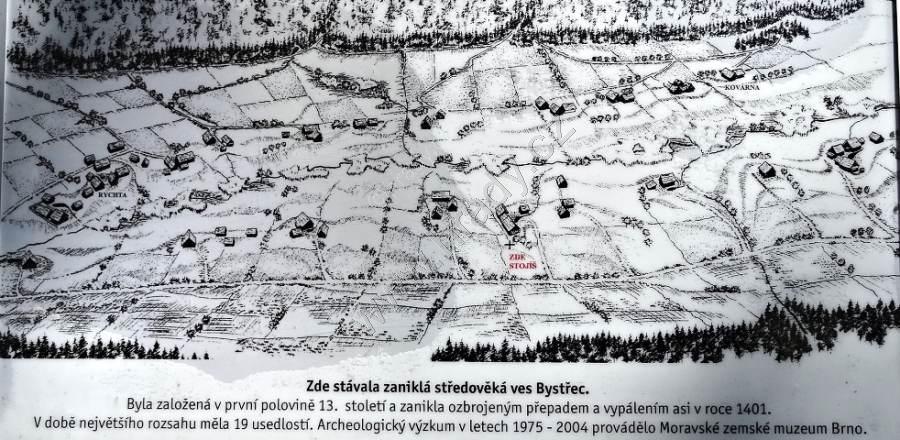 KOVÁRNA
RYCHTA
ZDE
STOJÍŠ
Zde stávala zaniklá středověká ves Bystřec.
Byla založená v první polovině 13. století a zanikla ozbrojeným přepadem a vypálením asi v roce 1401.
V době největšího rozsahu měla 19 usedlostí. Archeologický výzkum v letech 1975 - 2004 provádělo Moravské zemské muzeum Brno.